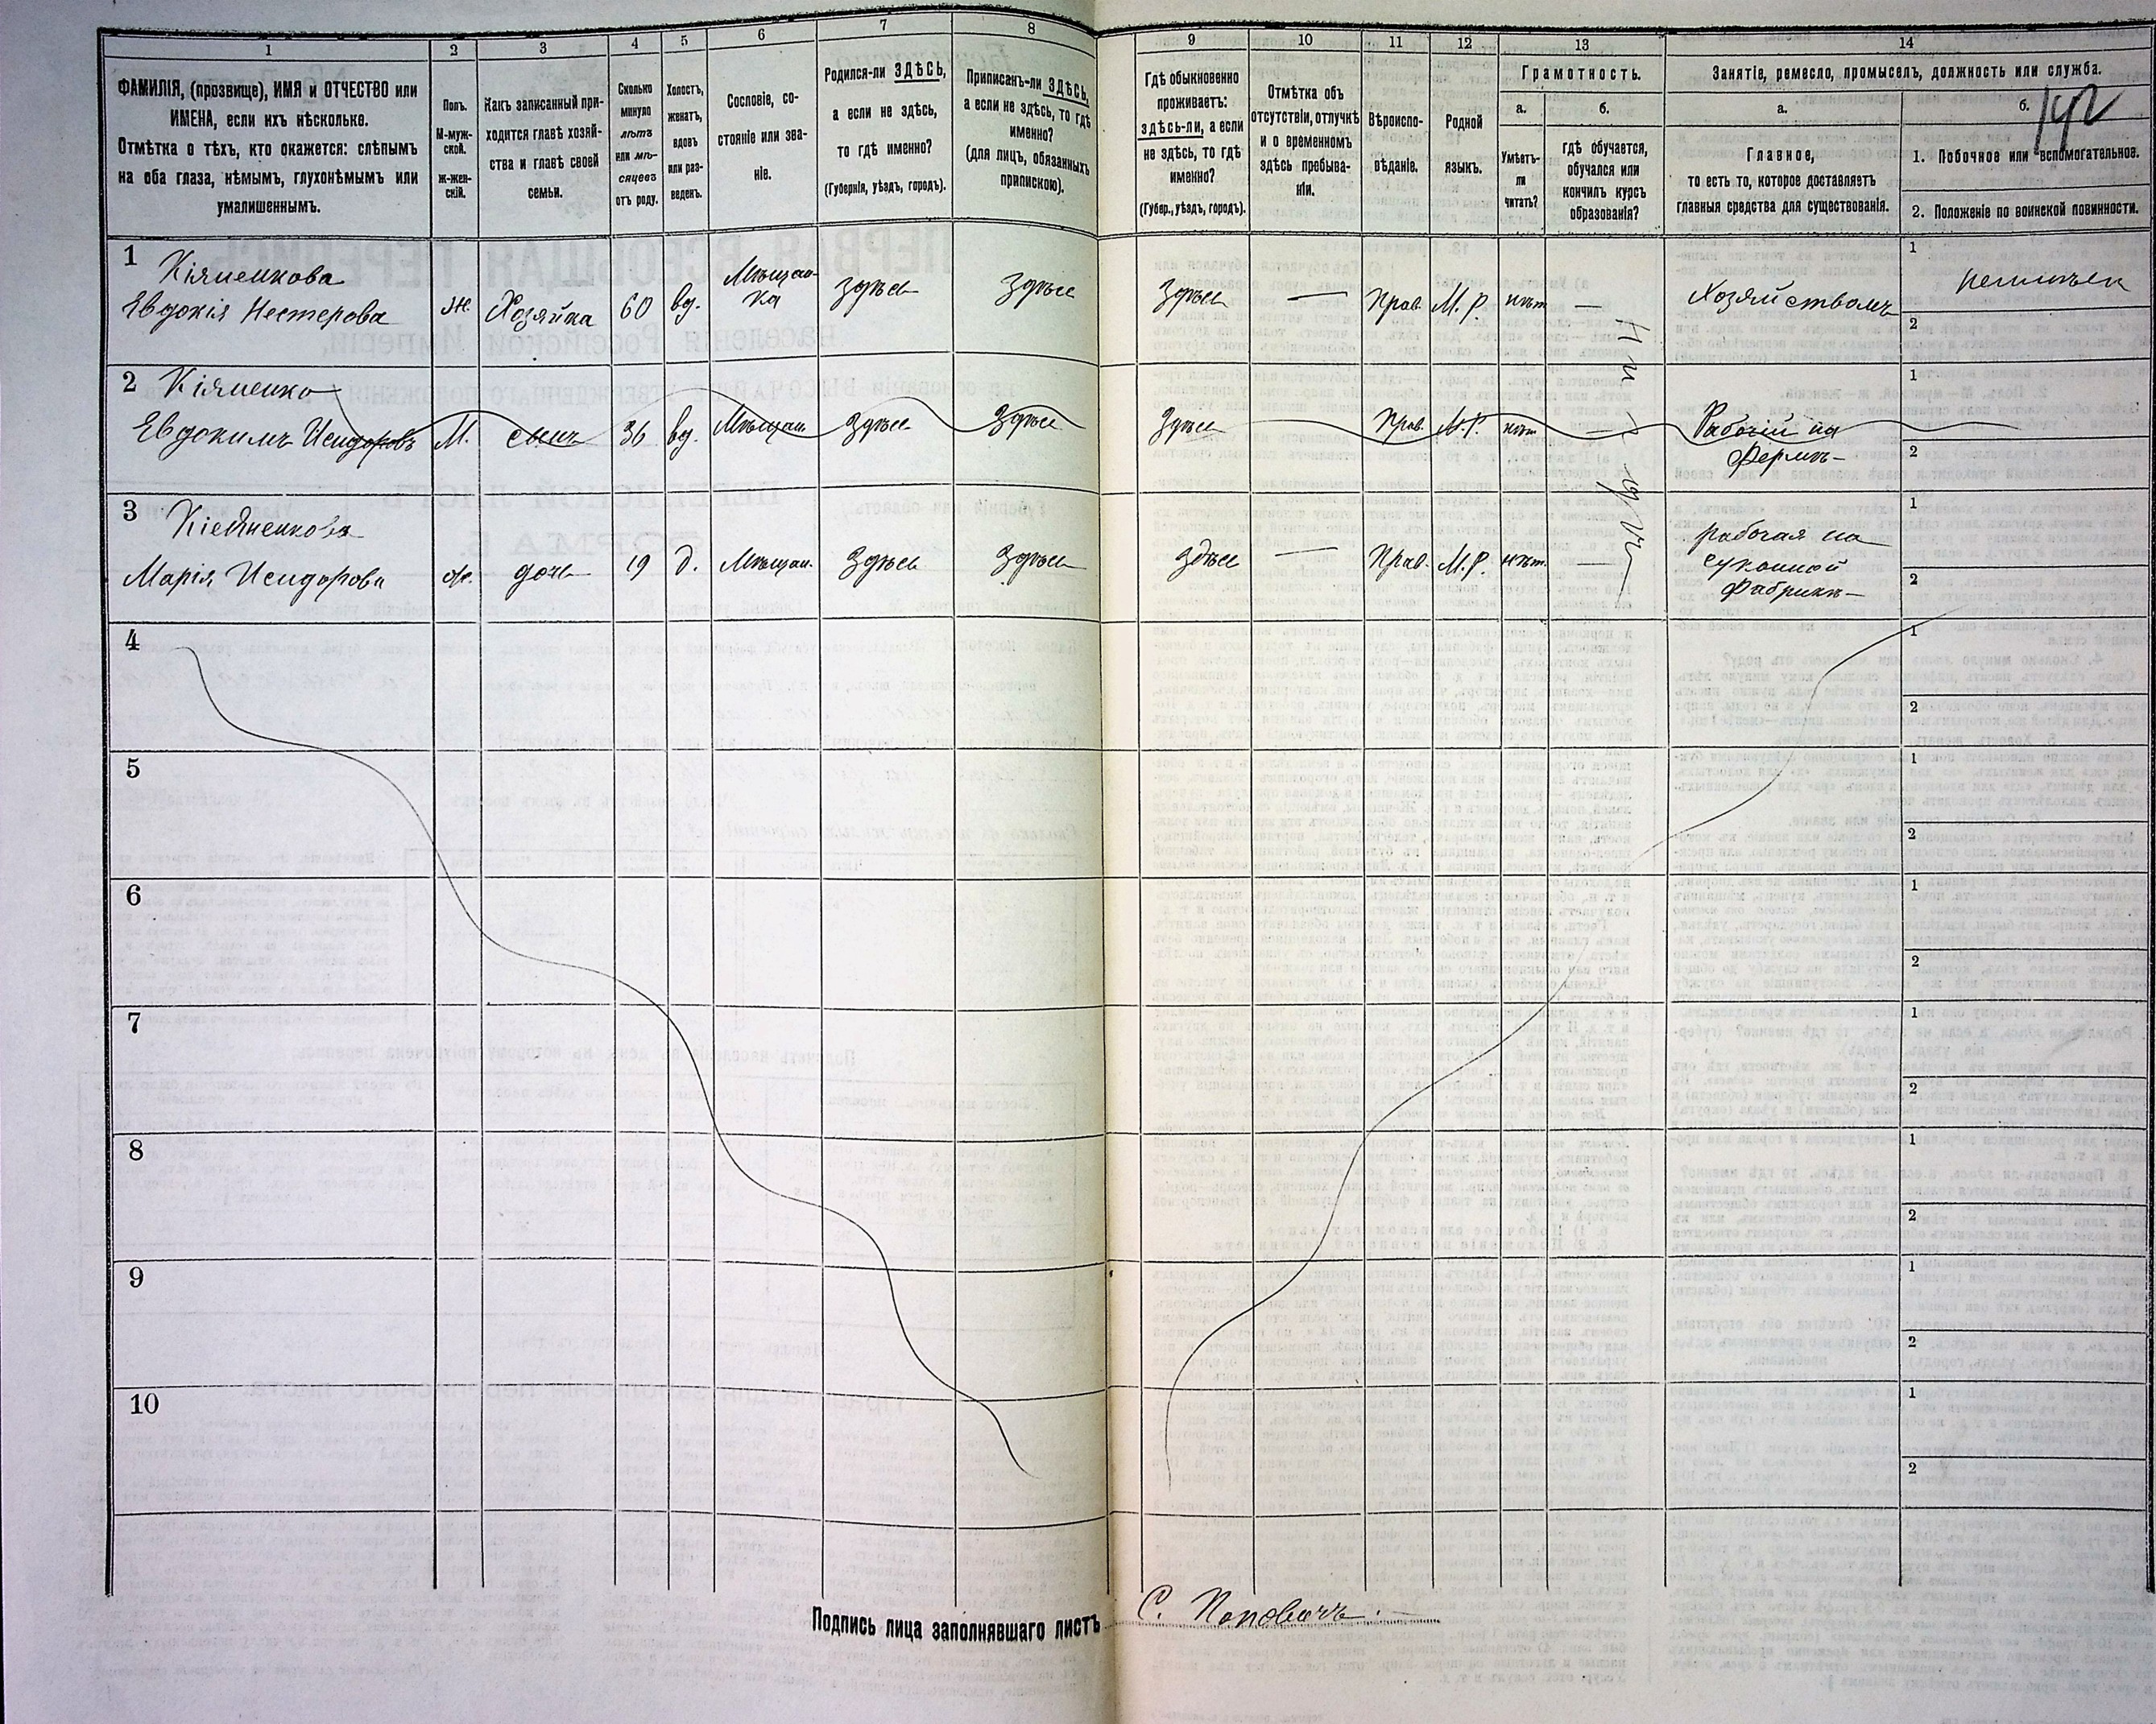 1 2 3 4 5 6 7 8 9 10 11 12 13 14
ФАМИЛІЯ, (прозвище), ИМЯ и ОТЧЕСТВО или
ИМЕНА, если ихъ нѣсколько.
Отмѣтка о тѣхъ, кто окажется: слѣпымъ
на оба глаза, нѣмымъ, глухонѣмымъ или
умалишеннымъ.
Полъ.
М-муж-
ской.
Ж-жен-
скій.
Какъ записанный при-
ходится главѣ хозяй-
ства и главѣ своей
семьи.
Сколько
минуло
лѣтъ
или мѣ-
сяцевъ
отъ роду.
Холостъ,
женатъ,
вдовъ
или раз-
веденъ.
Сословіе, со-
стояніе или зва-
ніе.
Родился-ли ЗДѢСЬ,
а если не здѣсь,
то гдѣ именно?
(Губернія, уѣздъ, городъ).
Приписанъ-ли ЗДѢСЬ,
а если не здѣсь, то гдѣ
именно?
(для лицъ, обязанныхъ
припискою).
Гдѣ обыкновенно
проживаетъ:
здѣсь-ли, а если
не здѣсь, то гдѣ
именно?
(Губер., уѣздъ, городъ).
Отмѣтка объ
отсутствіи, отлучкѣ
и о временномъ
здѣсь пребыва-
ніи.
Вѣроиспо-
вѣданіе.
Родной
языкъ.
Грамотность.
а.
Умѣетъ-
ли
читать?
б.
гдѣ обучается,
обучался или
кончилъ курсъ
образованія?
Занятіе, ремесло, промыселъ, должность или служба.
а.
Главное,
то есть то, которое доставляетъ
главныя средства для существованія.
б.
192
1. Побочное или вспомогательное.
2. Положеніе по воинской повинности.
1 Кіяненкова
Евдокія Нестерова Ж. Хозяйка 60 вд. Мѣщан-
ка здѣсь здѣсь здѣсь — Прав. М. Р. нѣт — Хозяйствомъ
1
2
2 Кіяненко
Евдокимъ Исидоровъ М. сынъ 36 вд. Мѣщан. здѣсь здѣсь здѣсь Прав. М.Р. нѣт — Рабочій на
Фермѣ
1
2
3 Кіяненкова
Марія Исидорова ж. дочь 19 д. Мѣщан. здѣсь здѣсь здѣсь — Прав. М.Р. нѣт. — рабочая на
суконной
Фабрикѣ
1
2
4
1
2
5
1
2
6
1
2
7
1
2
8
1
2
9
1
2
10
1
2
Подпись лица заполнявшаго листъ С. Поповичъ.